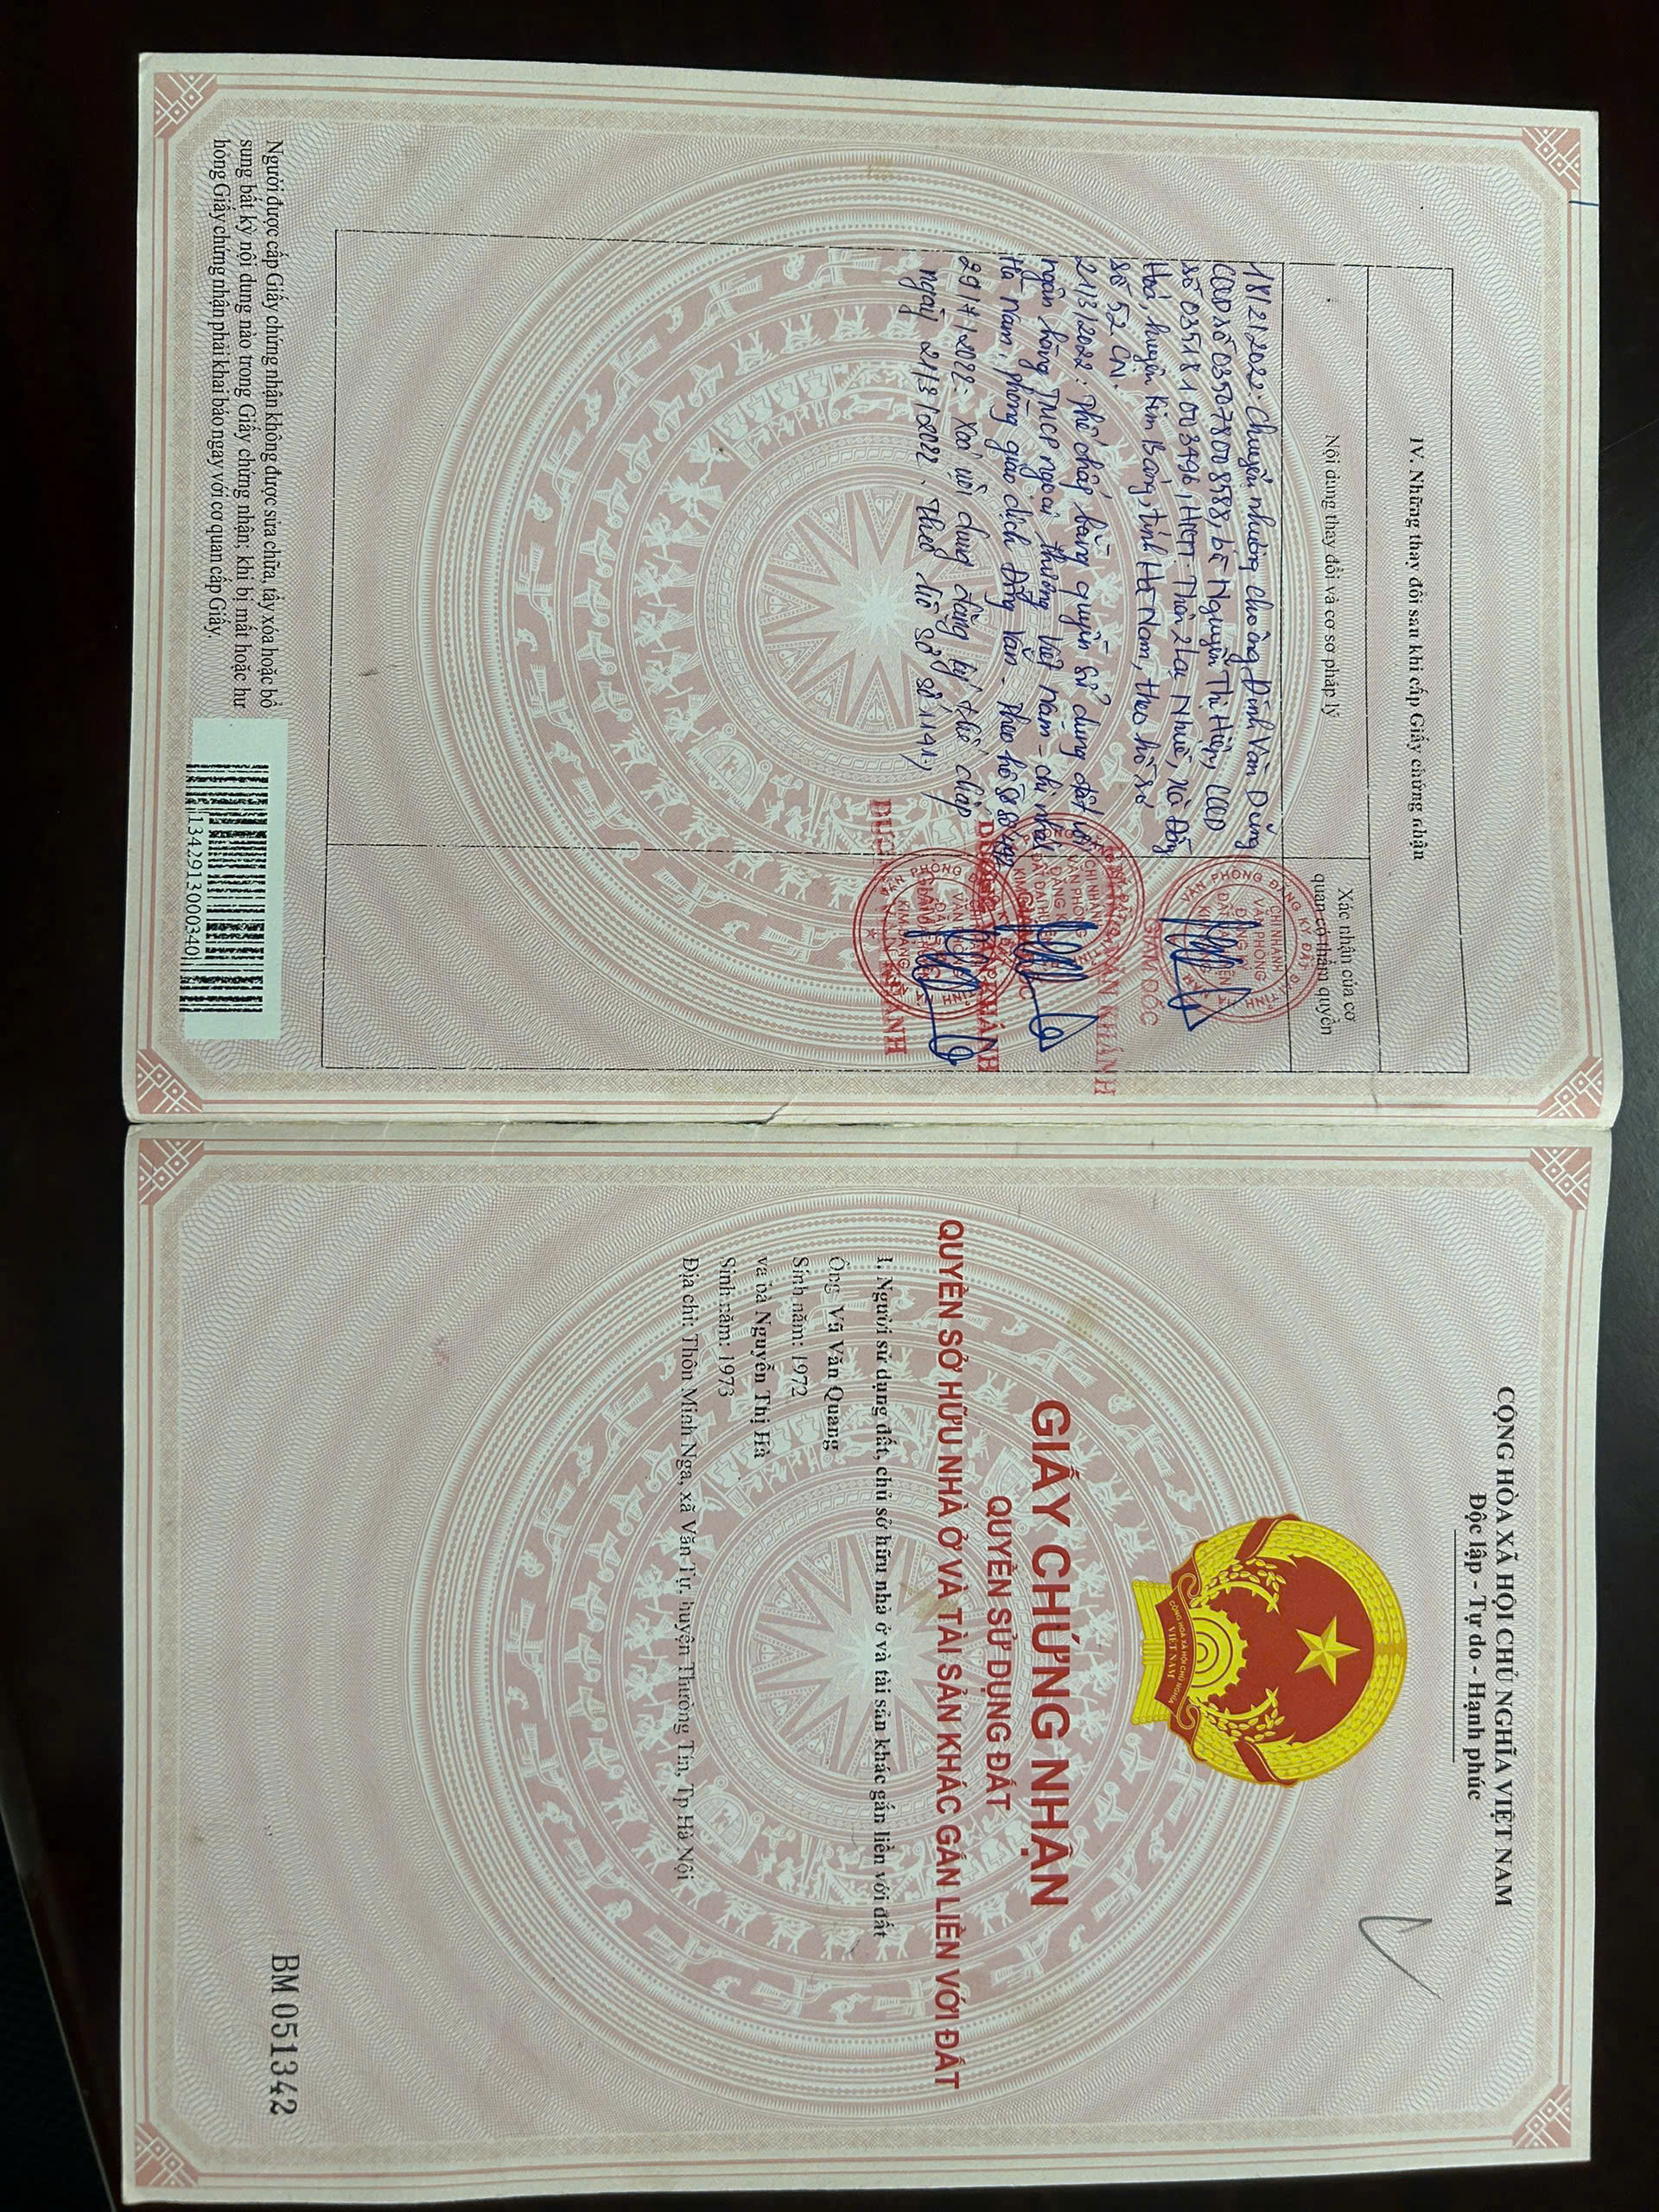 IV. Những thay đổi sau khi cấp Giấy chứng nhận
Nội dung thay đổi và cơ sở pháp lý
Xác nhận của cơ
quan có thẩm quyền
18/2/2022: Chuyển nhượng cho ông Đinh Văn Dũng
CCCD số 035078008588, bà Nguyễn Thị Hiệp, CCCD
số 035181003496, HKTT: Thôn 2 Lạt Nhuế, xã Đồng
Hoá, huyện Kim Bảng, tỉnh Hà Nam, theo hồ sơ
số 52 CN.
21/3/2022: Thế chấp bằng quyền sử dụng đất với
ngân hàng TMCP ngoại thương Việt Nam - chi nhánh
Hà Nam, phòng giao dịch Đồng Văn - theo hồ sơ số
29/7/2022: Xoá nội dung đăng ký thế chấp
ngày 21/3/2022. Theo hồ sơ số 1141
VĂN PHÒNG ĐĂNG KÝ ĐẤT ĐAI TỈNH HÀ NAM
CHI NHÁNH
VĂN PHÒNG
ĐĂNG KÝ
ĐẤT ĐAI HUYỆN
KIM BẢNG
GIÁM ĐỐC
Người được cấp Giấy chứng nhận không được sửa chữa, tẩy xóa hoặc bổ
sung bất kỳ nội dung nào trong Giấy chứng nhận; khi bị mất hoặc hư
hỏng Giấy chứng nhận phải khai báo ngay với cơ quan cấp Giấy.
1342913000340
CỘNG HÒA XÃ HỘI CHỦ NGHĨA VIỆT NAM
Độc lập - Tự do - Hạnh phúc
CỘNG HÒA XÃ HỘI CHỦ NGHĨA
VIỆT NAM
GIẤY CHỨNG NHẬN
QUYỀN SỬ DỤNG ĐẤT
QUYỀN SỞ HỮU NHÀ Ở VÀ TÀI SẢN KHÁC GẮN LIỀN VỚI ĐẤT
I. Người sử dụng đất, chủ sở hữu nhà ở và tài sản khác gắn liền với đất
Ông Vũ Văn Quang
Sinh năm: 1972
và bà Nguyễn Thị Hà
Sinh năm: 1973
Địa chỉ: Thôn Minh Nga, xã Văn Tự, huyện Thường Tín, Tp Hà Nội
BM 051342